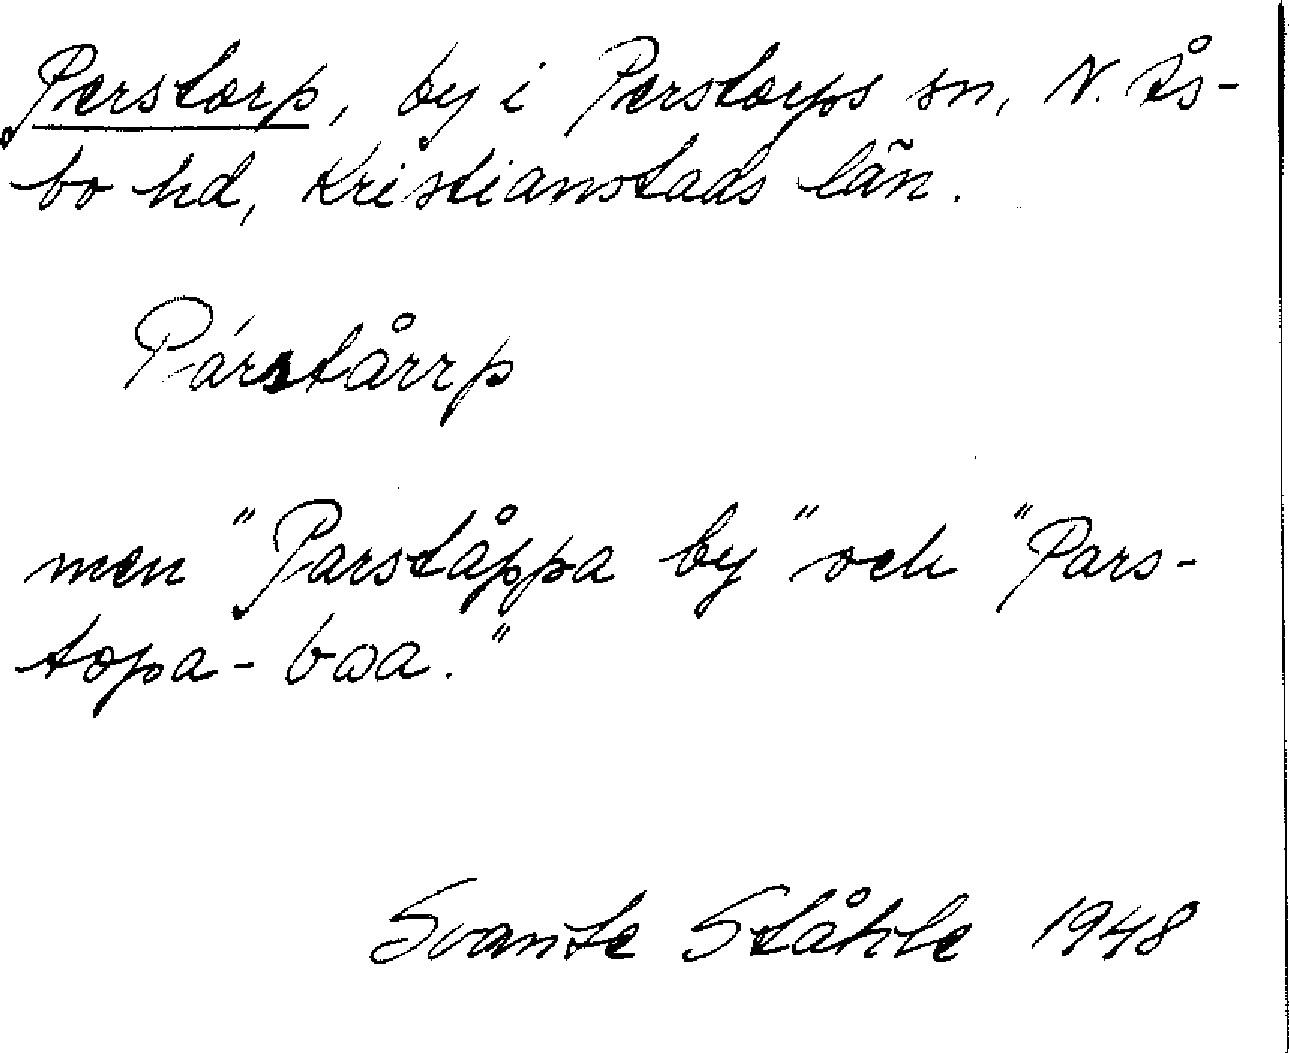 Perstorp, by i Perstorps sn, N. Ås-
bo hd, Kristianstads län.
Párstårrp
men "Parståppa by" och "Pars-
topa-boa."
Svante Ståhle 1948